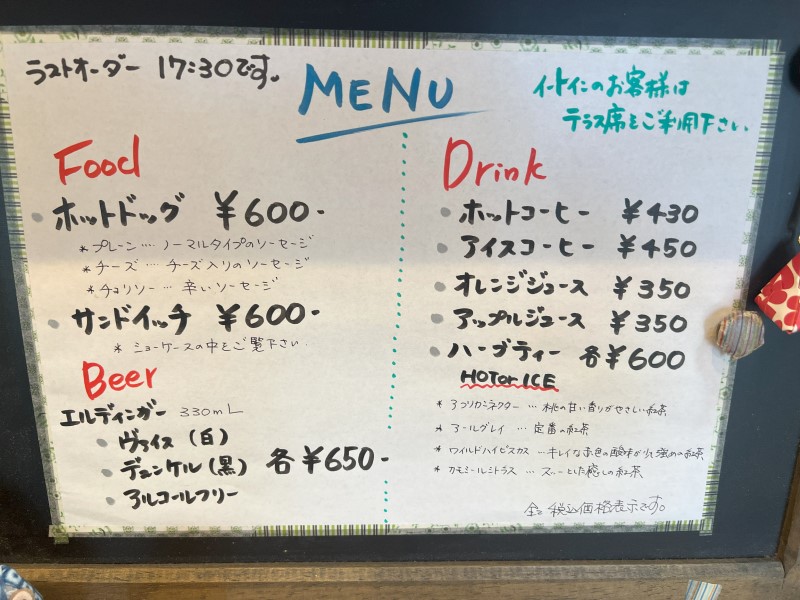 ラストオーダー 17:30です。
MENU
イートインのお客様は
テラス席をご利用下さい
Food
ホットドッグ ¥600-
*プレーン…ノーマルタイプのソーセージ
*チーズ…チーズ入りのソーセージ
*チョリソー…辛いソーセージ
サンドイッチ ¥600-
*ショーケースの中をご覧下さい
Beer
エルディンガー 330mL
ヴァイス(白)
デュンケル(黒) 各¥650-
アルコールフリー
Drink
ホットコーヒー ¥430
アイスコーヒー ¥450
オレンジジュース ¥350
アップルジュース ¥350
ハーブティー 各¥600
HOT or ICE
*アフリカンネクター…桃の甘い香りがやさしい紅茶
*アールグレイ…定番の紅茶
*ワイルドハイビスカス…キレイな赤色の酸味が少し強めの紅茶
*カモミールシトラス…スーッとした癒しの紅茶
全て税込価格表示です。